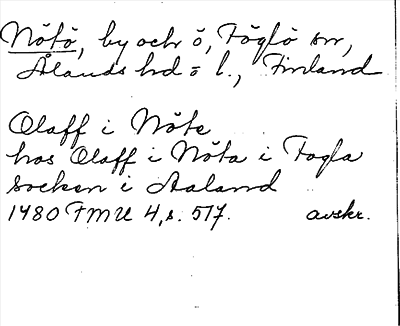 Nötö, by och ö, Föglö sn,
Ålands hd o l., Finland
Olaff i Nöte
hos Olaff i Nöta i Fogla
socken i Aaland
1480 FMU 4, s. 517. avskr.